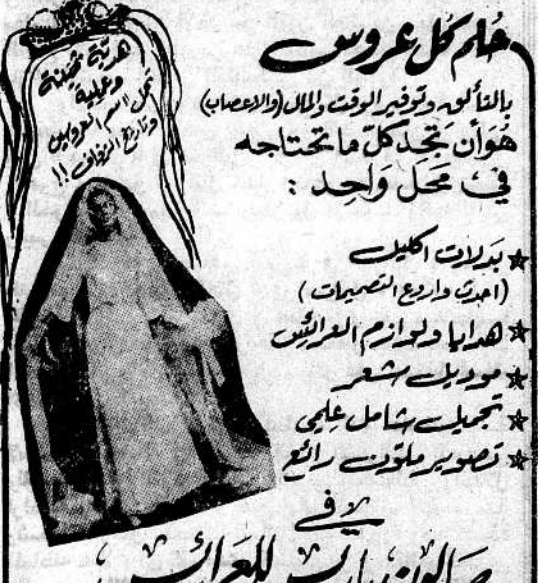 حُلم كُل عروس
بالتألق وتوفير الوقت والمال (والاعصاب)
هُوَ أن تجد كلّ ما تحتاجه
في محَل وَاحِد :
هديّة ثمينة
وعملية
تحمل اسم العروسين
وتاريخ الزفاف !!
★ بَدلات اكليل
(احدث واروع التصميمات)
★ هدايا ولوازم العرائس
★ موديل شعر
★ تجميل شامل عِلمي
★ تصوير ملوّن رائع
في
للعَرائس